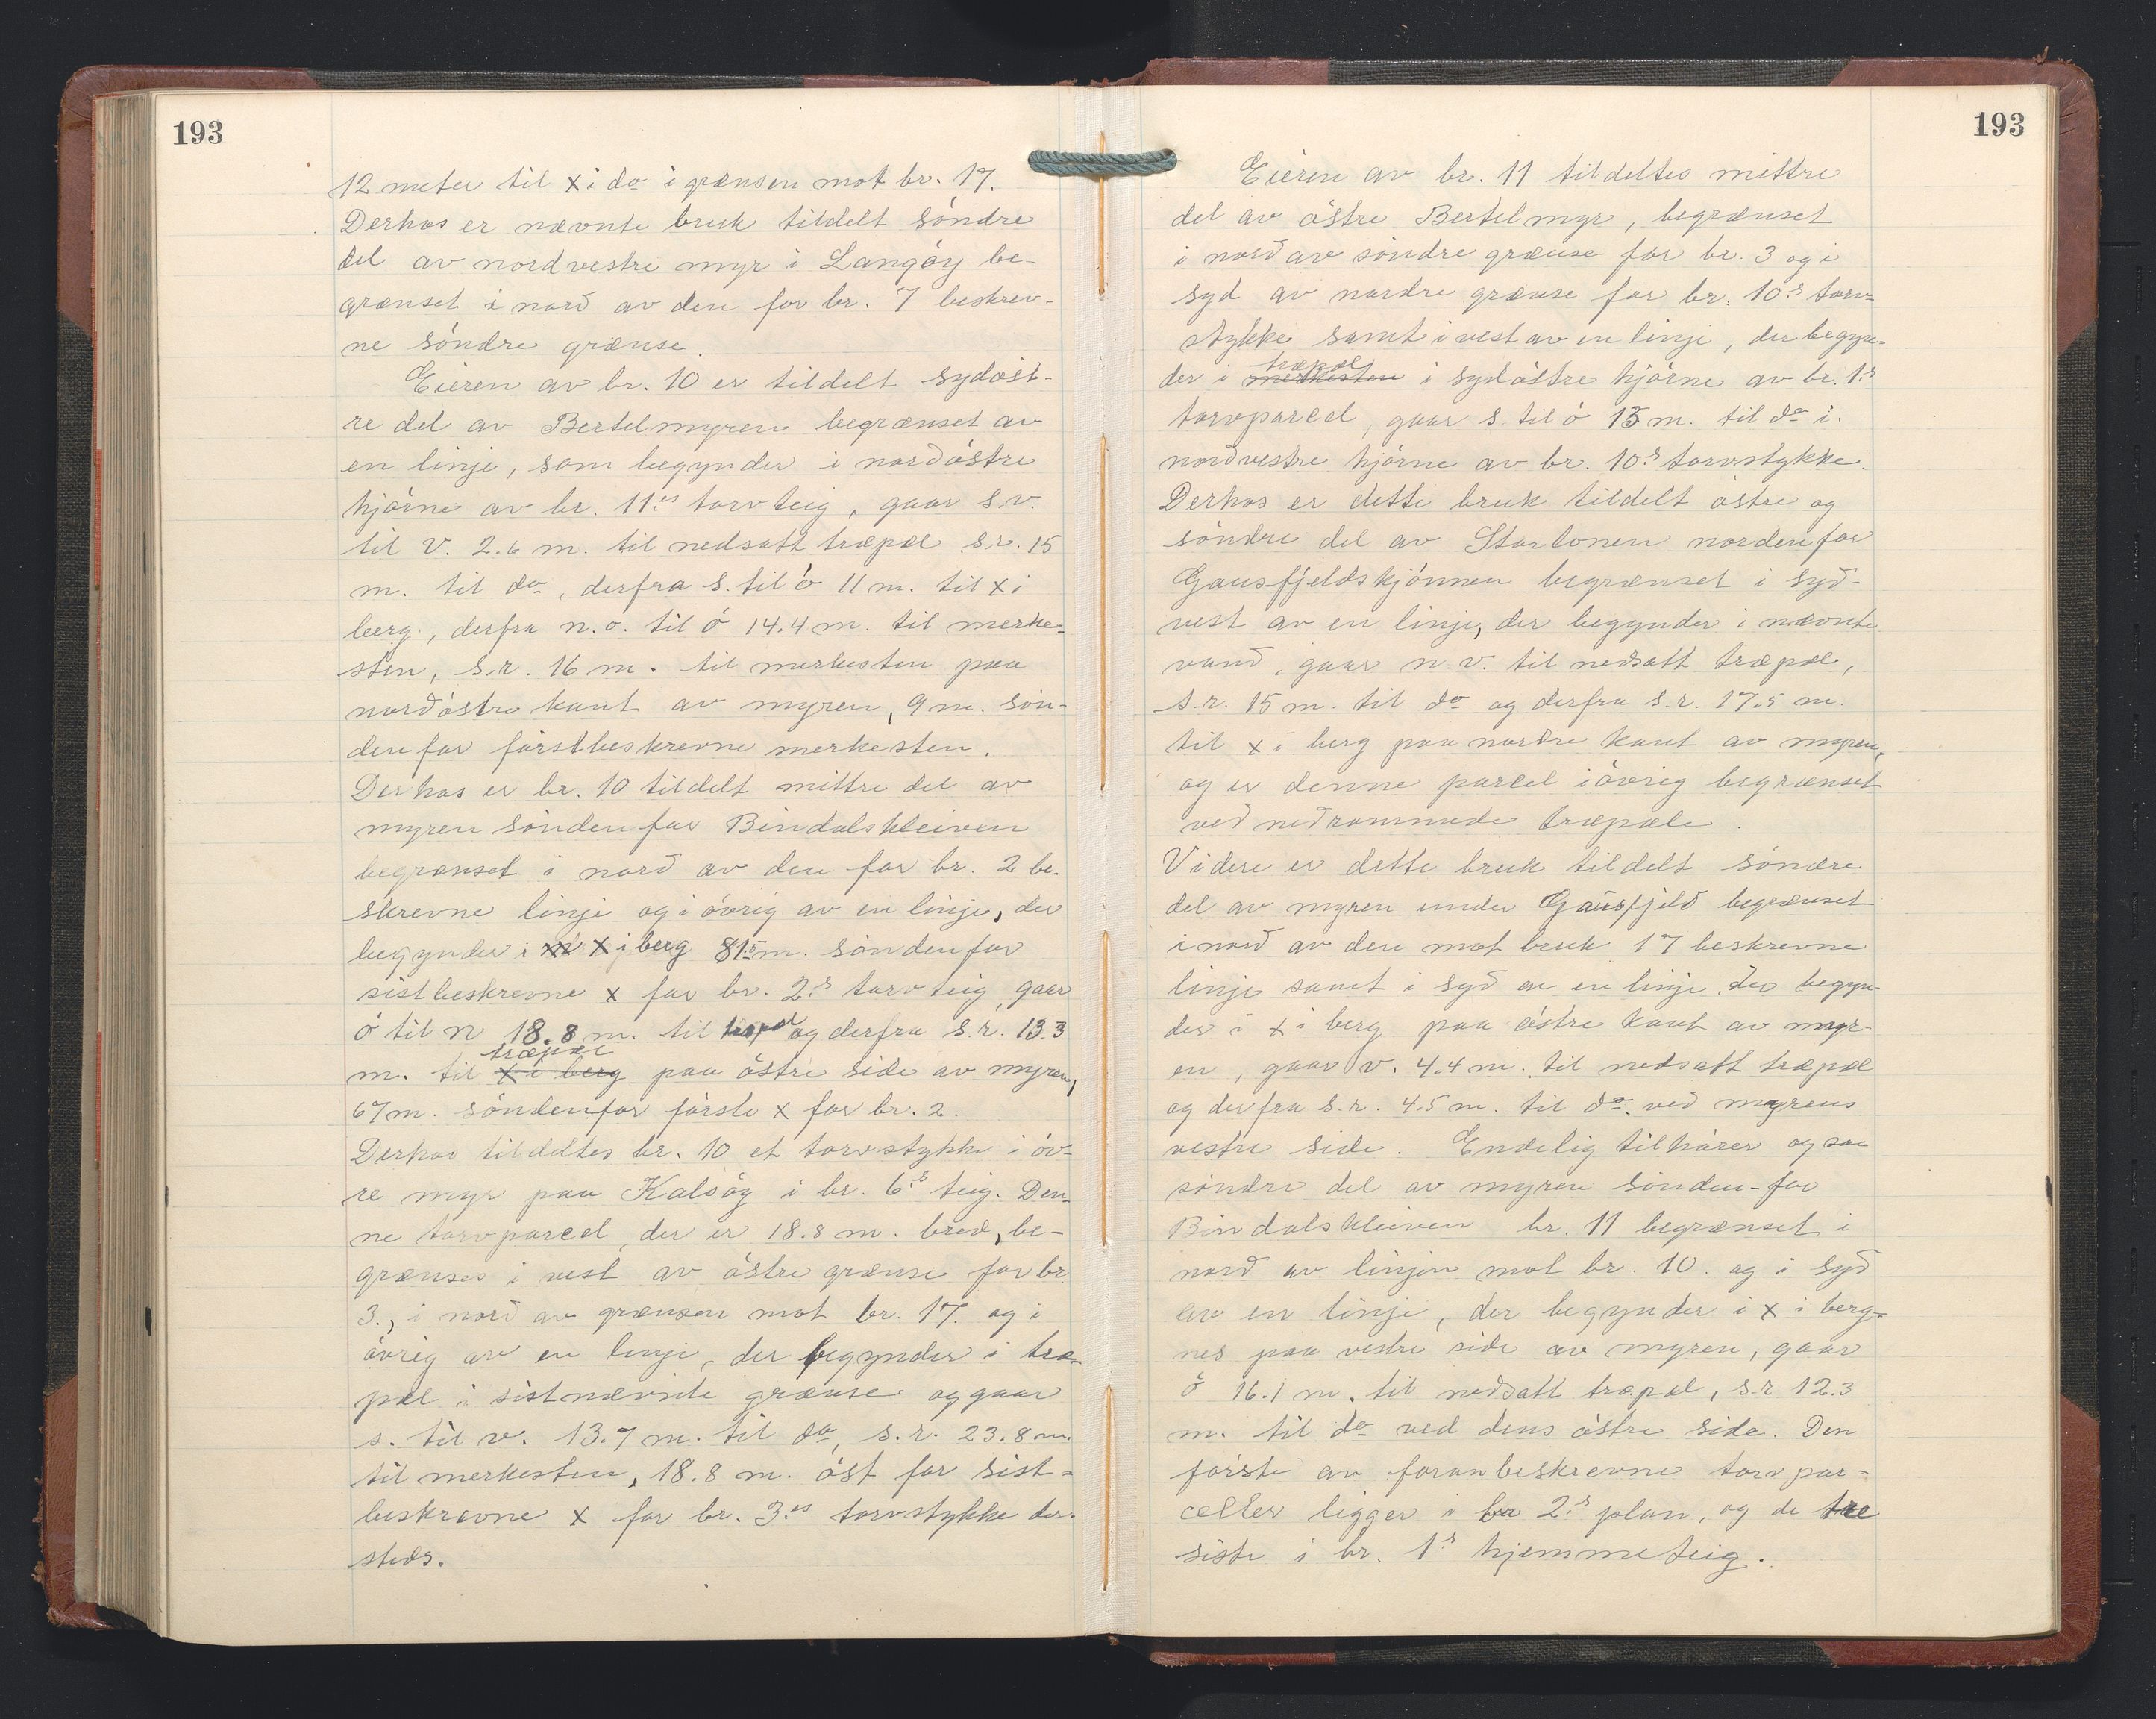 193
12 meter til x i do i grænsen mot br. 17.
Derhos er nævnte bruk tildelt söndre
del av nordvestre myr i Langöy be-
grænset i nord av den for br. 7 beskrev-
ne söndre grænse.
Eieren av br. 10 er tildelt sydöst-
re del av Bertelmyren begrænset av
en linje, som begynder i nordöstre
hjörne av br. 11es torvteig, gaar s.v.
til v. 2.6 m. til nedsatt træpæl s.r. 15
m. til do, derfra s. til ö 11 m. til x i
berg., derfra n.ö. til ö 14.4 m. til merke-
sten, s.r. 16 m. til merkesten paa
nordöstre kant av myren, 9 m. sön-
denfor förstbeskrevne merkesten.
Derhos er br. 10 tildelt mittre del av
myren söndenfor Bindalskleiven
begrænset i nord av den for br. 2 be-
skrevne linje og i övrig av en linje, der
begynder i x i berg 81.5 m. söndenfor
sistbeskrevne x for br. 2s torvteig, gaar
ö til n 18.8 m. til træpæl og derfra s.r. 13.3
træpæl
m. til x i berg paa östre side av myren,
67 m. söndenfor förste x for br. 2.
Derhos tildeltes br. 10 et torvstykke i öv-
re myr paa Kalsöy i br. 6s teig. Den-
ne torvparcel, der er 18.8 m. bred, be-
grænses i vest av östre grænse for br.
3., i nord av grænsen mot br. 17. og i
övrig av en linje, der begynder i træ-
pæl i sistnævnte grænse og gaar
s. til v. 13.7 m. til do, s.r. 23.8 m.
til merkesten, 18.8 m. öst for sist-
beskrevne x for br. 3es torvstykke der-
steds.
193
Eieren av br. 11 tildeltes mittre
del av östre Bertelmyr, begrænset
i nord av söndre grænse for br. 3 og i
syd av nordre grænse for br. 10s torv-
stykke samt i vest av en linje, der begyn-
træpæl
der i merkesten i sydöstre hjörne av br. 1s
torvparcel, gaar s. til ö 15 m. til do i.
nordvestre hjörne av br. 10s torvstykke.
Derhos er dette bruk tildelt östre og
söndre del av Stortonen nordenfor
Gausfjeldskjönnen begrænset i syd-
vest av en linje, der begynder i nævnte
vand, gaar n.v. til nedsatt træpæl,
s.r. 15 m. til do og derfra s.r. 17.5 m.
til x i berg paa nordre kant av myren,
og er denne parcel i övrig begrænset
ved nedrammede træpæle.
Videre er dette bruk tildelt söndre
del av myren under Gausfjeld begrænset
i nord av den mot bruk 17 beskrevne
linje samt i syd av en linje, der begyn-
der i x i berg paa östre kant av myr-
en, gaar v. 4.4 m. til nedsatt træpæl
og derfra s.r. 4.5 m. til do. ved myrens
vestre side. Endelig tilhörer ogsaa
söndre del av myren sönden-for
Bindalskleiven br. 11 begrænset i
nord av linjen mot br. 10. og i syd
av en linje, der begynder i x i berg-
nes paa vestre side av myren, gaar
ö 16.1 m. til nedsatt træpæl, s.r. 12.3
m. til do ved dens östre side. Den
förste av foranbeskrevne torvpar-
celler ligger i br 2s plan, og de tre
siste i br. 1s hjemmeteig.